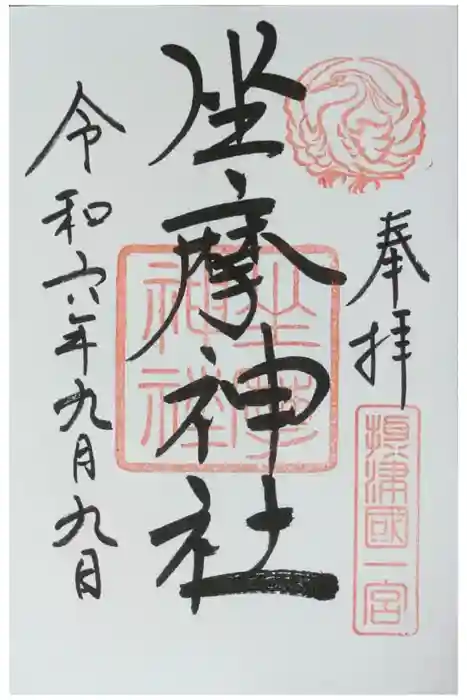 奉拝
攝津國一宮
坐摩神社
坐摩神社
令和六年九月九日